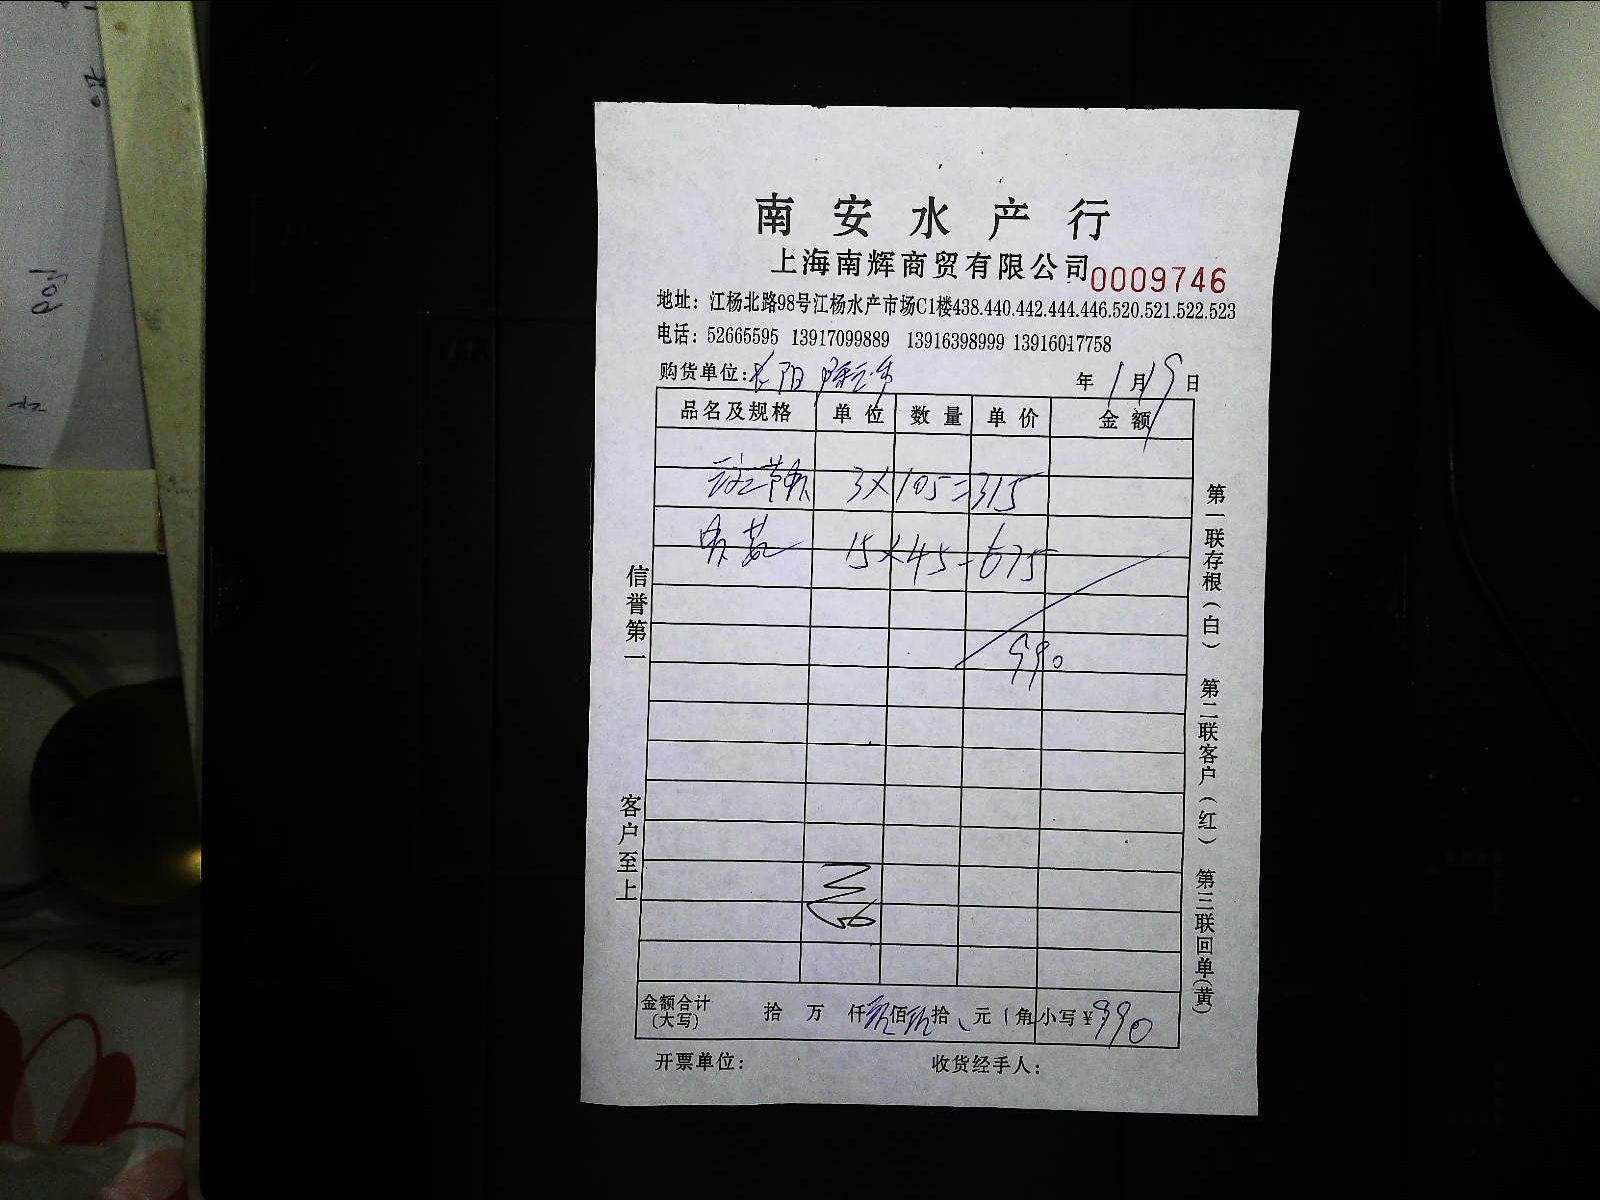 南安水产行
上海南辉商贸有限公司 0009746
地址：江杨北路98号江杨水产市场C1楼438.440.442.444.446.520.521.522.523
电话：52665595 13917099889 13916398999 13916017758
购货单位： 年1月19日
品名及规格 单位 数量 单价 金额
3×105=315
15×45=675
990
信誉第一
客户至上
第一联存根（白） 第二联客户（红） 第三联回单(黄)
金额合计(大写) 拾 万 仟玖佰玖拾 元 角 小写￥：990
开票单位： 收货经手人：